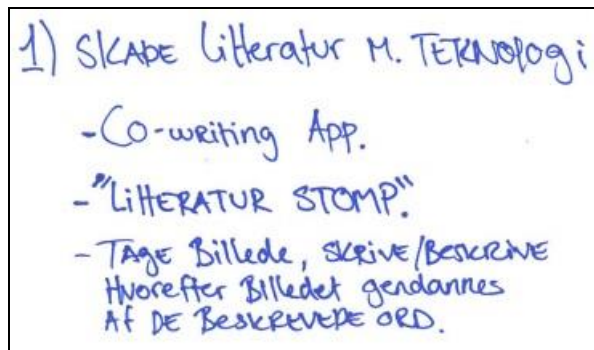 1) SKABE Litteratur M. TEKNOlogi
-Co-writing App.
-"LiTTERATUR STOMP".
- TAge Billede, SKRIVE/BESKRIVE
Hvorefter Billedet gendannes
Af DE BESKREVEDE ORD.